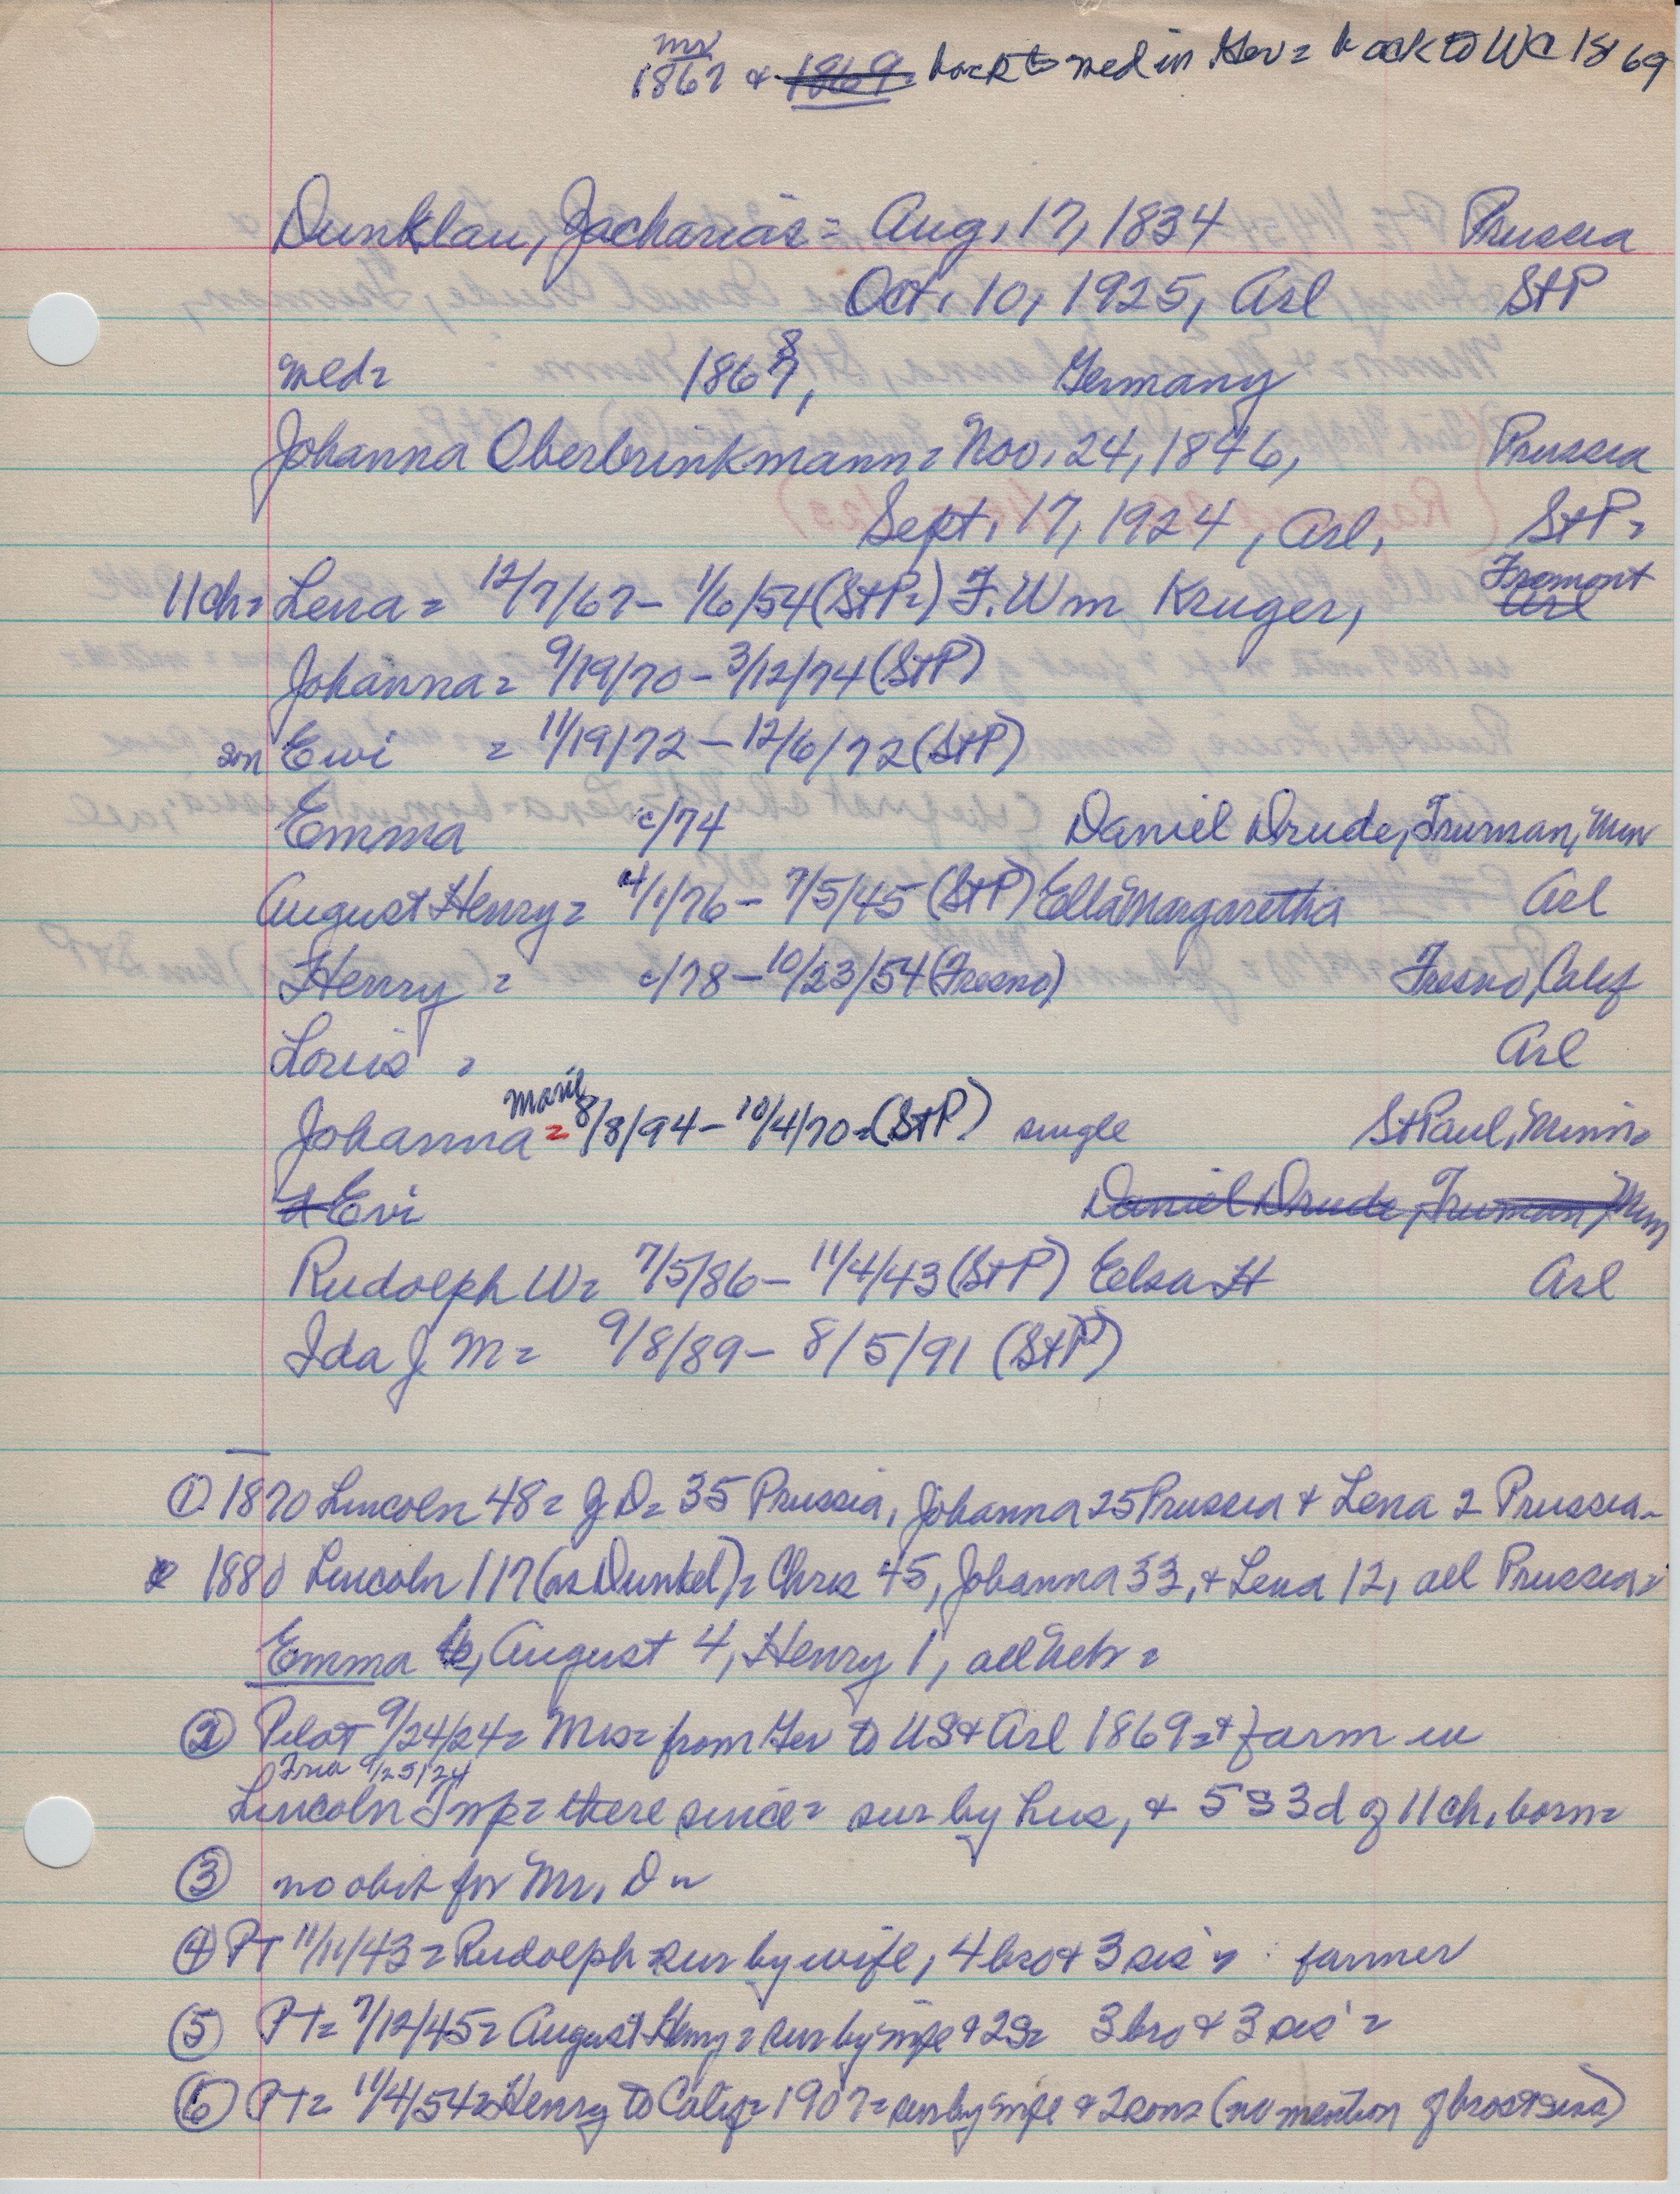 mr
1867 & 1869 back to med in Ger = back to WC 1869
Dunklau, Zacharias = Aug. 17, 1834 Prussia
Oct. 10, 1925, Arl StP
med = 1868, Germany
Johanna Oberbrinkmann = Nov. 24, 1846, Prussia
Sept. 17, 1924, Arl, StP =
11ch = Lena = 12/7/67 - 1/6/54 (StP =) F. Wm Kruger, Fremont Arl
Johanna = 9/19/70 - 3/12/74 (StP)
son Ewi = 11/19/72 - 12/6/72 (StP)
Emma c/74 Daniel Drude, Truman, Minn
August Henry = 4/1/76 - 7/5/45 (StP) Ella Margaretha Arl
Henry = c/78 - 10/23/54 (Fresno) Fresno, Calif
Louis = Arl
Johanna Marie = 8/8/94 - 10/4/70 = (StP) single St Paul, Minn =
Evi Daniel Drude, Truman, Minn
Rudolph W = 7/5/86 - 11/4/43 (StP) Elsa H Arl
Ida J M = 9/8/89 - 8/5/91 (StP)
① 1870 Lincoln 48 = J D = 35 Prussia, Johanna 25 Prussia & Lena 2 Prussia -
& 1880 Lincoln 117 (as Dunkel) = Chris 45, Johanna 33, & Lena 12, all Prussia =
Emma 6, August 4, Henry 1, all Neb =
② Pilot 9/24/24 = Mrs = from Ger to US & Arl 1869 = & farm in
Trib 9/25/24
Lincoln Twp = there since = sur by hus, & 5 s 3 d of 11 ch. born =
③ no obit for Mr. D =
④ PT 11/11/43 = Rudolph = sur by wife, 4 bro & 3 sis = farmer
⑤ PT = 7/12/45 = August Henry = sur by wife & 2 s = 3 bro & 3 sis' =
⑥ PT = 11/4/54 = Henry to Calif = 1907 = sur by wife & 2 sons (no mention of bros & siss)